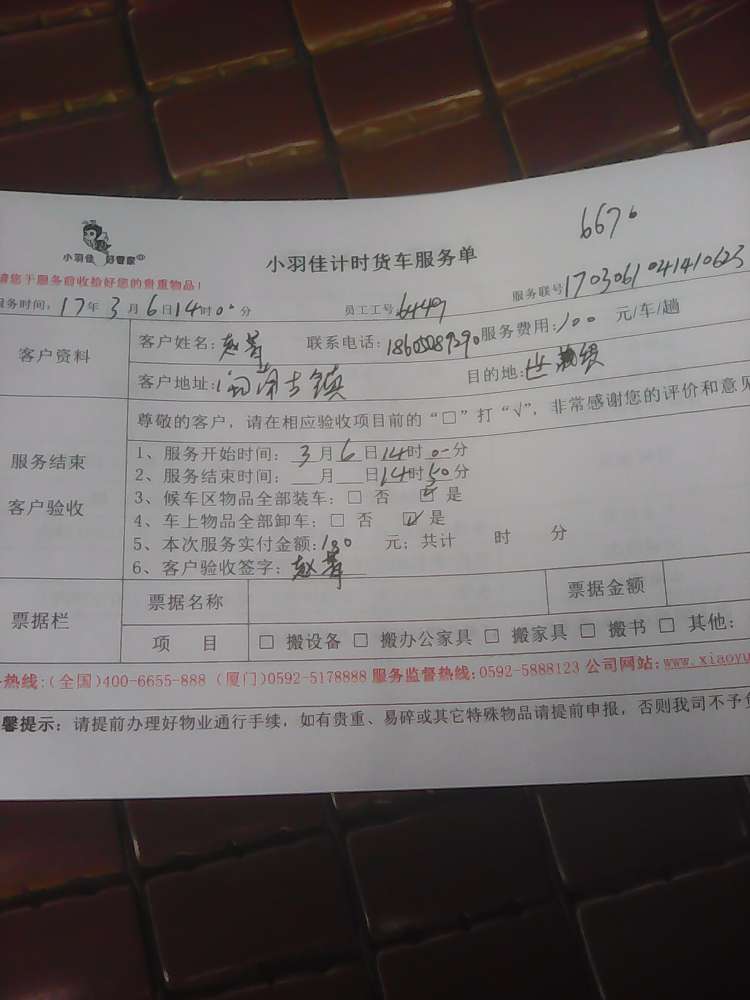 6670
小羽佳 好管家
小羽佳计时货车服务单
请您于服务前收拾好您的贵重物品!
服务联号1703061041410623
服务时间: 17年 3月 6日14时00分 员工工号6449
客户资料 客户姓名: 赵菁 联系电话: 服务费用: 100 元/车/趟
客户地址: 闽南古镇 目的地: 世
尊敬的客户,请在相应验收项目前的“□”打“√”,非常感谢您的评价和意见
服务结束
客户验收
1、服务开始时间: 3月 6日14时00分
2、服务结束时间: 月 日14时50分
3、候车区物品全部装车: □ 否 ☑ 是
4、车上物品全部卸车: □ 否 ☑ 是
5、本次服务实付金额: 100 元; 共计 时 分
6、客户验收签字: 赵菁
票据栏 票据名称 票据金额
项 目 □ 搬设备 □ 搬办公家具 □ 搬家具 □ 搬书 □ 其他:
热线:(全国)400-6655-888 (厦门)0592-5178888 服务监督热线:0592-5888123 公司网站: www.xiaoyu
馨提示: 请提前办理好物业通行手续,如有贵重、易碎或其它特殊物品请提前申报,否则我司不予